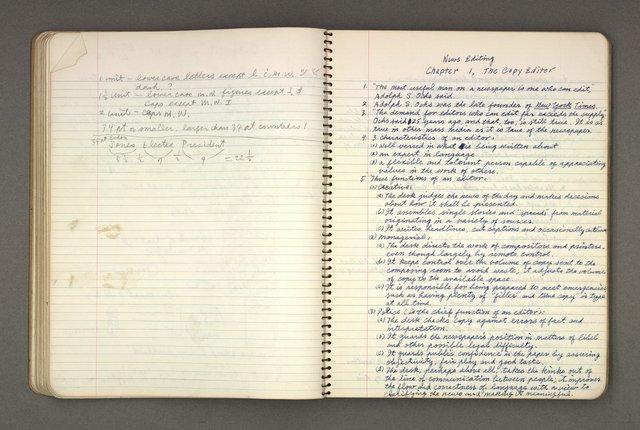 1 unit – lower case letters except
dash ?
1½ unit – lower case m, figures except 1, &
Caps except M, W, I
2 units – Caps M, W.
Jones Elected President
= 22½
News Editing
Chapter 1, The Copy Editor
1. "The most useful man on a newspaper is one who can edit,"
Adolph S. Ochs said.
2. Adolph S. Ochs was the late founder of New York Times.
3. "The demand for editors who can edit far exceeds the supply"
Ochs said 25 years ago, and that, too, is still true. It is as
true in other mass media as it is true of the newspaper.
4. 3 characteristics of an editor:
(1) well versed in what is being written about
(2) an expert in language
(3) a flexible and tolerant person capable of appreciating
values in the work of others.
5. Three functions of an editor:
(1) Creative:
(a) The desk judges the news of the day and makes decisions
about how it shall be presented.
(b) It assembles single stories and "spreads" from material
originating in a variety of sources.
(c) It writes headlines, cut captions and occasionally
(2) Managerial:
(a) The desk directs the work of compositors and printers,
even though largely by remote control.
(b) It keeps control over the volume of copy sent to the
composing room to avoid waste; it adjusts the volume
of copy to the available space.
(c) It is responsible for being prepared to meet emergencies
such as having plenty of "filler" and "time copy" in type
at all time.
(3) Police (is the chief function of an editor):
(a) The desk checks copy against errors of fact and
interpretation.
(b) It guards the newspaper's position in matters of libel
and other possible legal difficulty.
(c) It guards public confidence in the paper by assuring
objectivity, fair play and good taste.
(d) The desk, perhaps above all, takes the kinks out of
the line of communication between people; it improves
the flow and correctness of language with a view to
clarifying the news and making it meaningful.